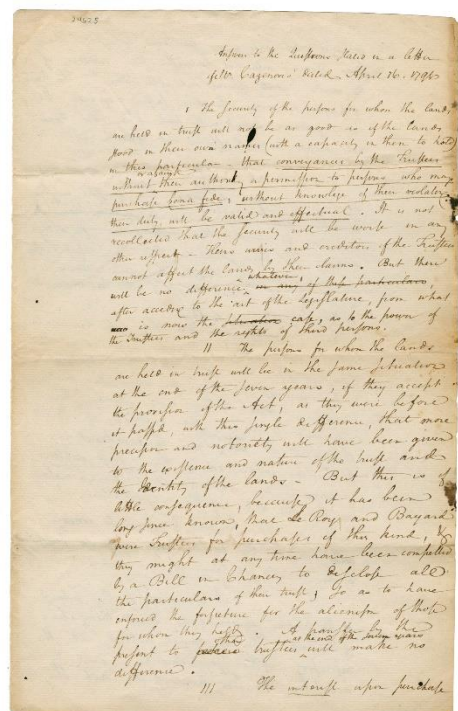 24625
Answer to the Questions stated in a letter
of Mr Cazenove dated April 16. 1796
1 The Security of the persons for whom the lands
are held in trust will not be as good as if the lands
stood in their own names (with a capacity in them to hold)
in this particular - that conveyances by the Trustees
without their authority or a permission to persons who may
purchase bona fide, without knowledge of their violating
their duty will be valid and effectual. It is not
recollected that the security will be worse in any
other respect - Heirs wives and creditors of the Trustees
cannot affect the lands by their claims. But there
will be no difference whatever, in any of these particulars,
after acceding to the act of the legislature, from what
is now the situation case, as to the power of
the Trustees and the rights of third persons.
II The persons for whom the lands
are held in trust will be in the same situation
at the end of the seven years, if they accept
the provision of the Act, as they were before
it passed, with this single difference, that more
precision and notoriety will have been given
to the existence and nature of the trust and
the Identity of the lands - But this is of
little consequence, because it has been
long since known, that Le Roy and Bayard
were Trustees for purchases of this kind, &
they might at any time have been compelled
by a Bill in Chancery to disclose all
the particulars of their trust; so as to have
enforced the forfeiture for the alienism of those
for whom they held. A transfer by the
present to other trustees at the end of the seven years will make no
difference.
III The interest upon purchase